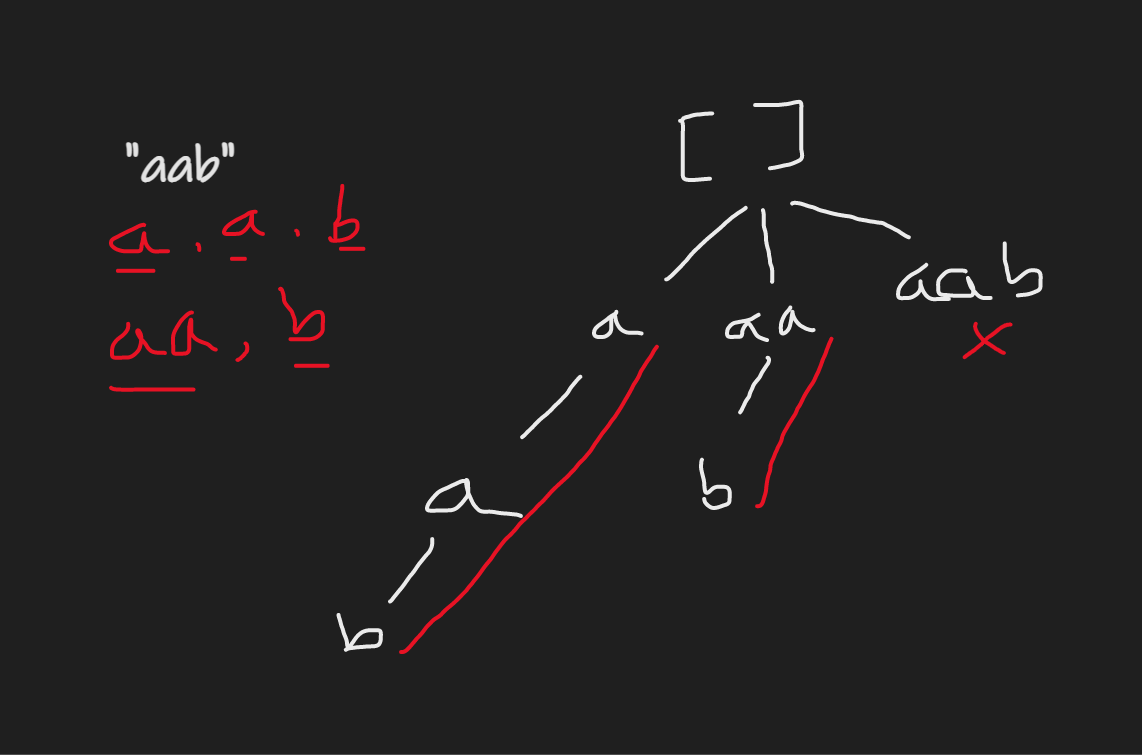 "aab"
a . a . b
aa, b
[ ]
a aa aab
x
a b
b